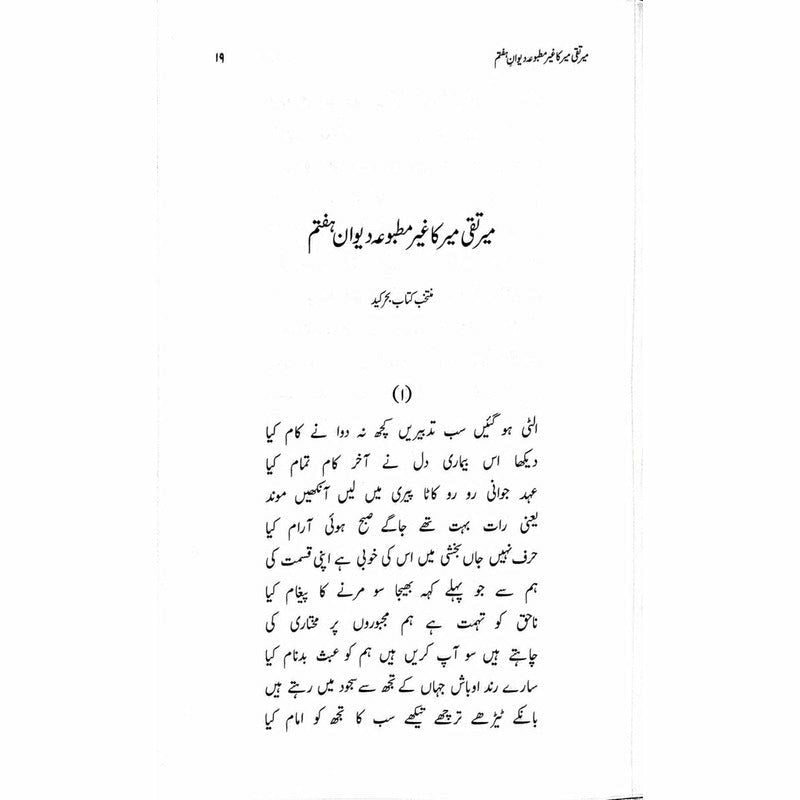 میر تقی میر کا غیر مطبوعہ دیوانِ ہفتم ۱۹
میر تقی میر کا غیر مطبوعہ دیوان ہفتم
منتخب کتاب بحر کید
(۱)
الٹی ہو گئیں سب تدبیریں کچھ نہ دوا نے کام کیا
دیکھا اس بیماری دل نے آخر کام تمام کیا
عہد جوانی رو رو کاٹا پیری میں لیں آنکھیں موند
یعنی رات بہت تھے جاگے صبح ہوئی آرام کیا
حرف نہیں جاں بخشی میں اس کی خوبی ہے اپنی قسمت کی
ہم سے جو پہلے کہہ بھیجا سو مرنے کا پیغام کیا
ناحق کو تہمت ہے ہم مجبوروں پر مختاری کی
چاہتے ہیں سو آپ کریں ہیں ہم کو عبث بدنام کیا
سارے رند اوباش جہاں کے تجھ سے سجود میں رہتے ہیں
بانکے ٹیڑھے ترچھے تیکھے سب کا تجھ کو امام کیا